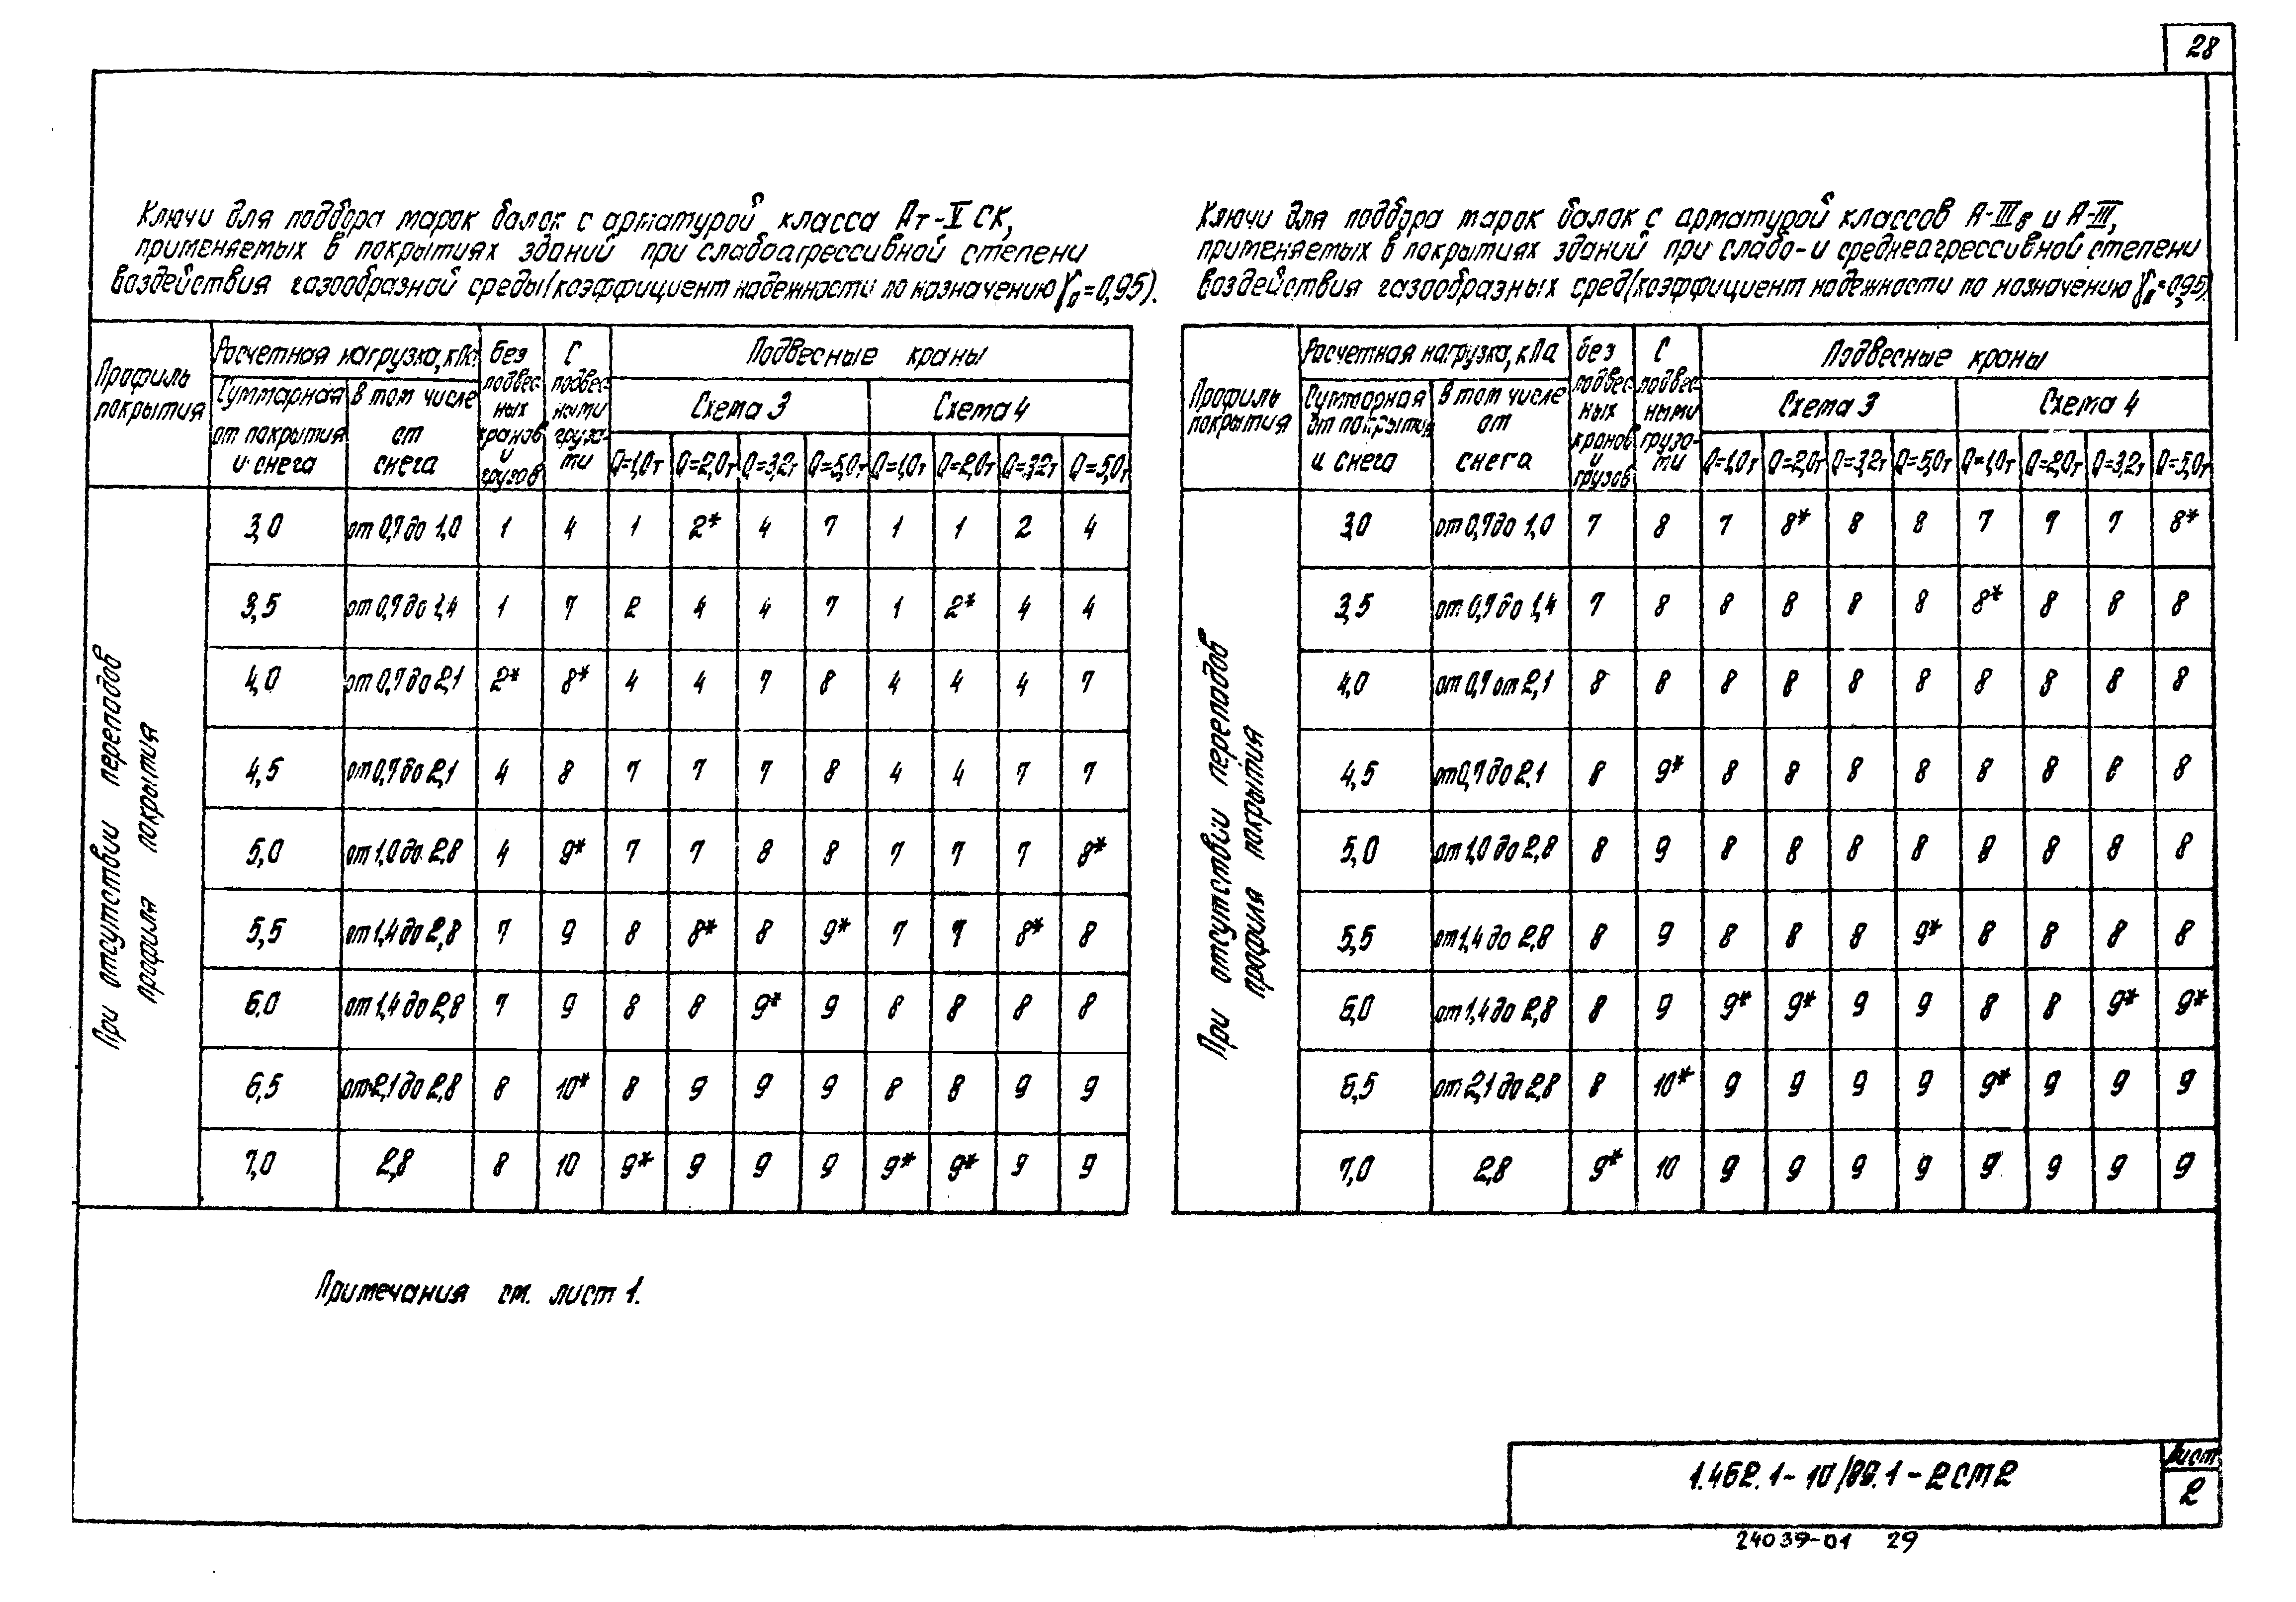 28
Ключи для подбора марок балок с арматурой класса Ат-V СК,
применяемых в покрытиях зданий при слабоагрессивной степени
воздействия газообразной среды (коэффициент надежности по назначению γn=0,95).
Профиль покрытия
Расчетная нагрузка, кПа
Суммарная от покрытия и снега
В том числе от снега
без подвесных кранов и грузов
С подвесными грузами
Подвесные краны
Схема 3 Схема 4
Q=1,0т Q=2,0т Q=3,2т Q=5,0т Q=1,0т Q=2,0т Q=3,2т Q=5,0т
При отсутствии перепадов
профиля покрытия
3,0 от 0,7 до 1,0 1 4 1 2* 4 7 1 1 2 4
3,5 от 0,7 до 1,4 1 7 2 4 4 7 1 2* 4 4
4,0 от 0,7 до 2,1 2* 8* 4 4 7 8 4 4 4 7
4,5 от 0,7 до 2,1 4 8 7 7 7 8 4 4 7 7
5,0 от 1,0 до 2,8 4 9* 7 7 8 8 7 7 7 8*
5,5 от 1,4 до 2,8 7 9 8 8* 8 9* 7 7 8* 8
6,0 от 1,4 до 2,8 7 9 8 8 9* 9 8 8 8 8
6,5 от 2,1 до 2,8 8 10* 8 9 9 9 8 8 9 9
7,0 2,8 8 10 9* 9 9 9 9* 9* 9 9
Примечания см. лист 1.
Ключи для подбора марок балок с арматурой классов А-IIIв и А-III,
применяемых в покрытиях зданий при слабо- и среднеагрессивной степени
воздействия газообразных сред (коэффициент надежности по назначению γn=0,95).
Профиль покрытия
Расчетная нагрузка, кПа
Суммарная от покрытия и снега
В том числе от снега
без подвесных кранов и грузов
С подвесными грузами
Подвесные краны
Схема 3 Схема 4
Q=1,0т Q=2,0т Q=3,2т Q=5,0т Q=1,0т Q=2,0т Q=3,2т Q=5,0т
При отсутствии перепадов
профиля покрытия
3,0 от 0,7 до 1,0 7 8 7 8* 8 8 7 7 7 8*
3,5 от 0,7 до 1,4 7 8 8 8 8 8 8* 8 8 8
4,0 от 0,7 от 2,1 8 8 8 8 8 8 8 8 8 8
4,5 от 0,7 до 2,1 8 9* 8 8 8 8 8 8 8 8
5,0 от 1,0 до 2,8 8 9 8 8 8 8 8 8 8 8
5,5 от 1,4 до 2,8 8 9 8 8 8 9* 8 8 8 8
6,0 от 1,4 до 2,8 8 9 9* 9* 9 9 8 8 9* 9*
6,5 от 2,1 до 2,8 8 10* 9 9 9 9 9* 9 9 9
7,0 2,8 9* 10 9 9 9 9 9 9 9 9
1.462.1-10/89.1-2СМ2
Лист
2
24039-01 29